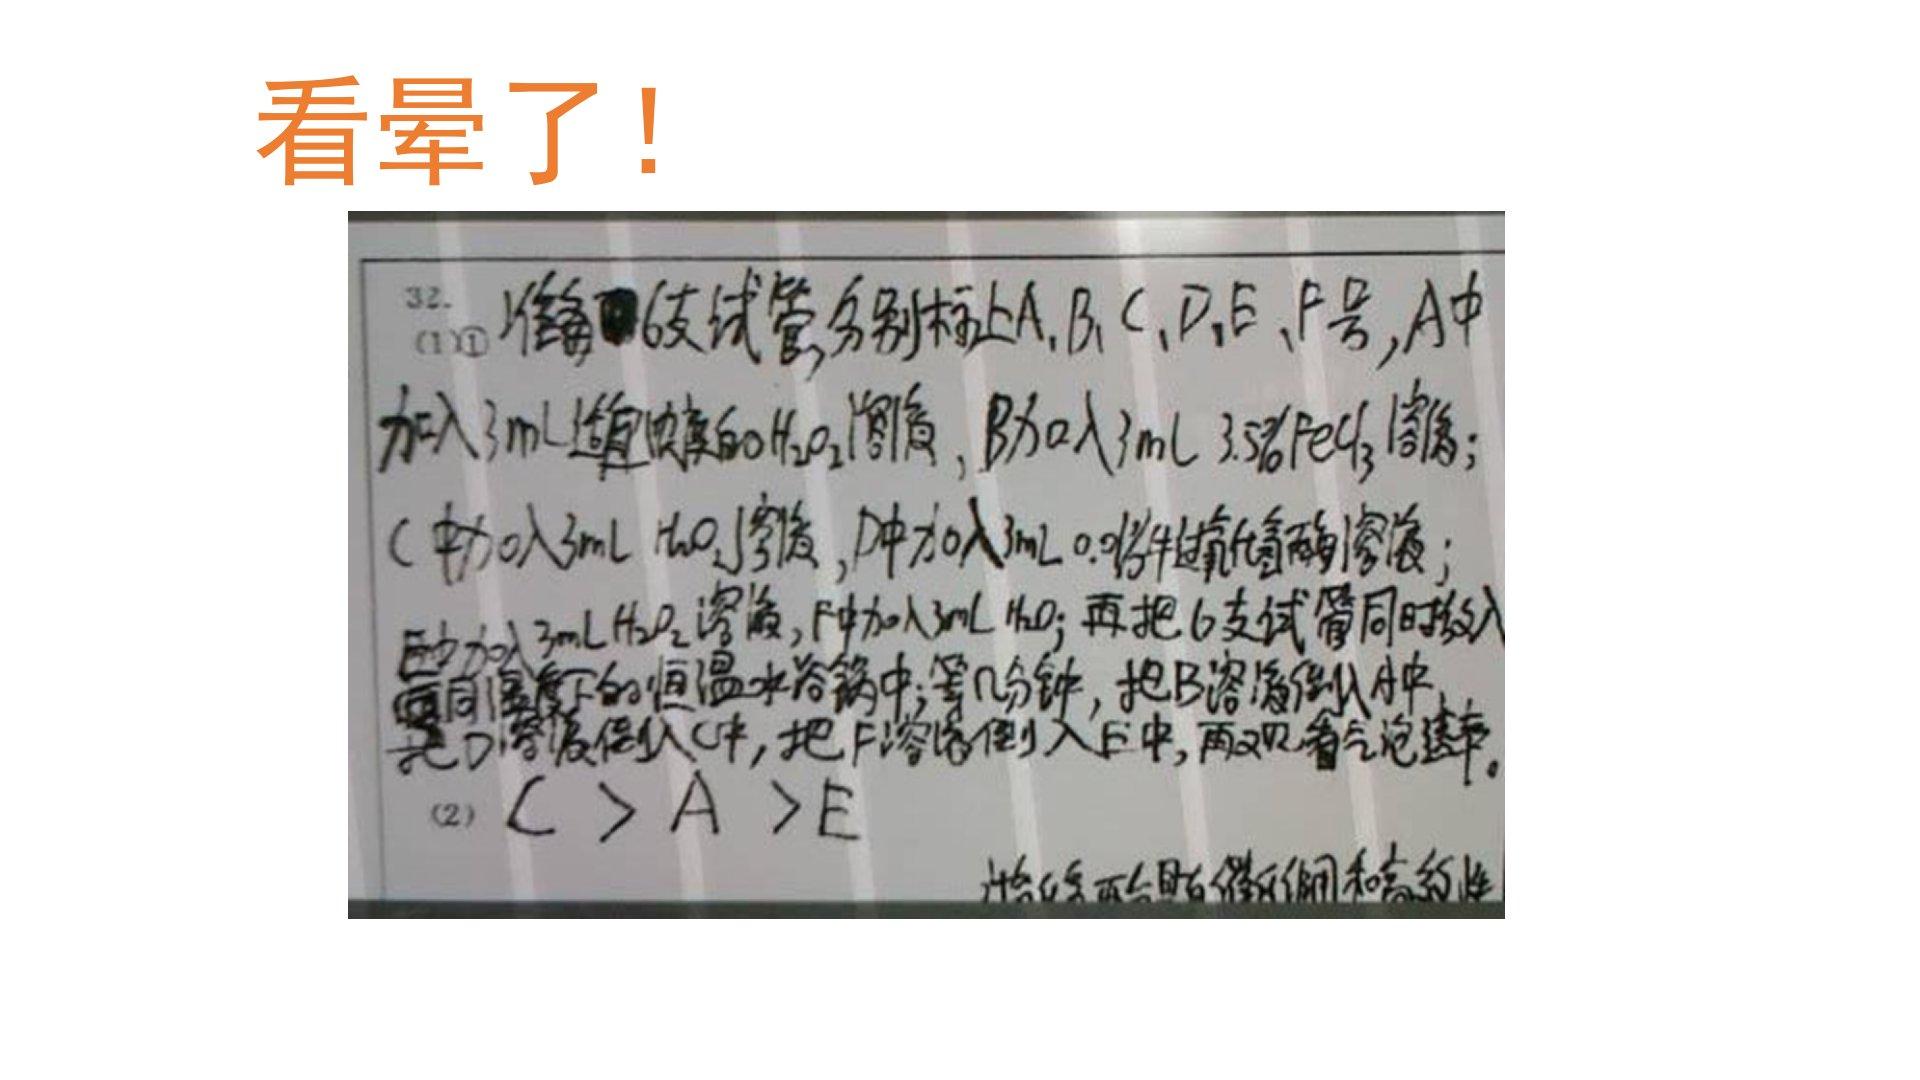 看晕了!
32.
(1)① 准备6支试管,分别标上A、B、C、D、E、F号,A中
加入3mL适宜浓度的H₂O₂溶液,B加入3mL 3.5%FeCl₃溶液;
C中加入3mL H₂O₂溶液,D中加入3mL 0.01%牛过氧化氢酶溶液;
E中加入3mL H₂O₂溶液,F中加入3mL H₂O;再把6支试管同时放入
同温度下的恒温水浴锅中;等几分钟,把B溶液倒入A中,
把D溶液倒入C中,把F溶液倒入E中,再观看气泡速率。
(2) C > A > E
和高效性